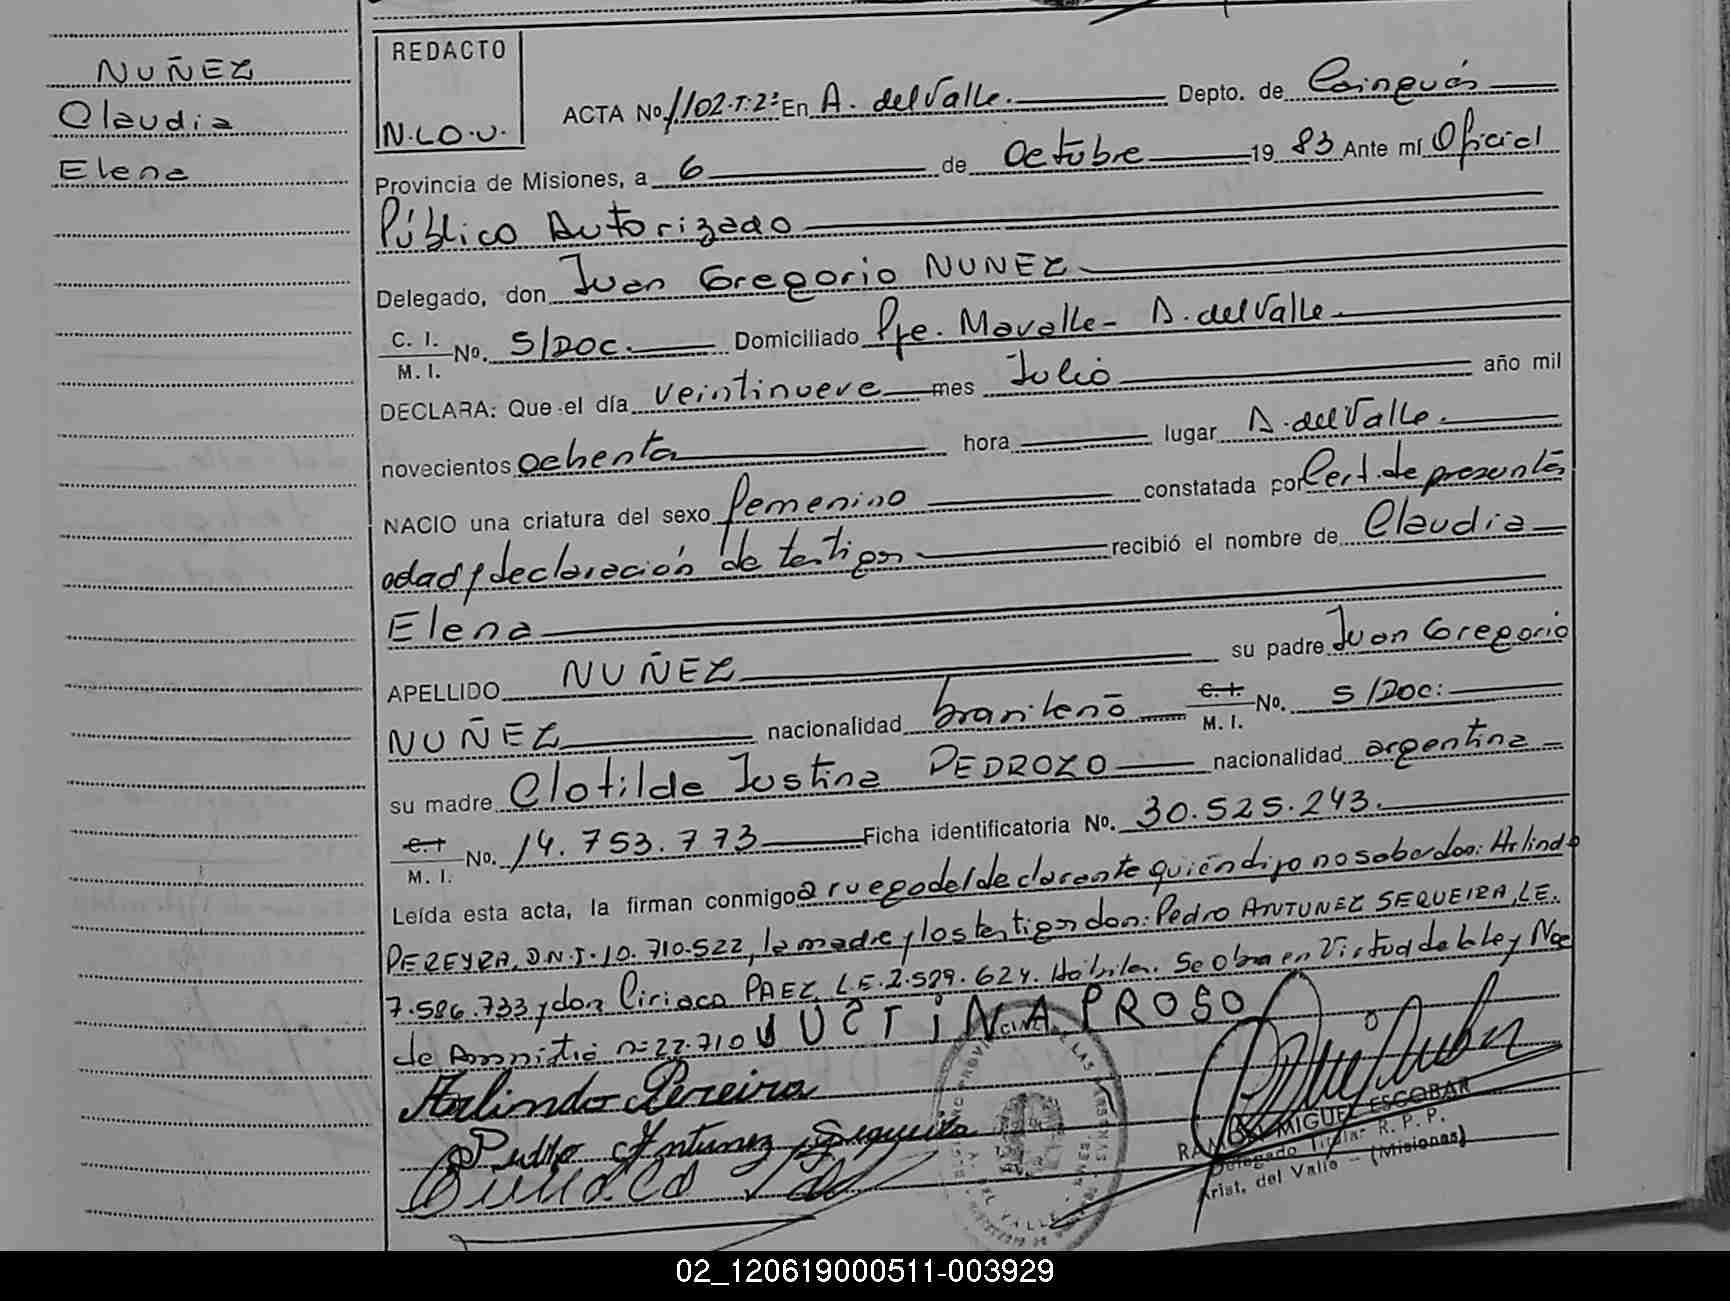 NUÑEZ
Claudia
Elena
REDACTO
N.LO.U.
ACTA No. 1102.T:2º En A. del Valle. Depto. de Cainguás
Provincia de Misiones, a 6 de Octubre 19 83 Ante mí Oficial
Público Autorizado
Delegado, don Juan Gregorio NUNEZ
C. I.
M. I. No. S/DOC. Domiciliado Pje. Mavalle- A. del Valle.
DECLARA: Que el día veintinueve mes Julio año mil
novecientos ochenta hora lugar A. del Valle.
NACIO una criatura del sexo femenino constatada por Cert. de presunta
edad y declaración de testigos recibió el nombre de Claudia
Elena
APELLIDO NUÑEZ su padre Juan Gregorio
NUÑEZ nacionalidad brasileño C. I. M. I. No. S/DOC:
su madre Clotilde Justina PEDROZO nacionalidad argentina
C. I. M. I. No. 14.753.773 Ficha identificatoria No. 30.525.243.
Leída esta acta, la firman conmigo a ruego del declarante quién dijo no saber don: Arlindo
PEREYRA, D.N.I. 10.710.522, la madre y los testigos don: Pedro ANTUNEZ SEQUEIRA, L.E.
7.586.733 y don Ciriaco PAEZ L.E. 2.589.624. Hábiles. Se obra en Virtud de la ley Nac
de Amnistia nº 22.710 JUSTINA PROSO
Arlindo Pereira
Pedro Antunez Sequeira
RAMON MIGUEL ESCOBAR
Delegado Titular R. P. P.
Arist. del Valle - (Misiones)
02_120619000511-003929